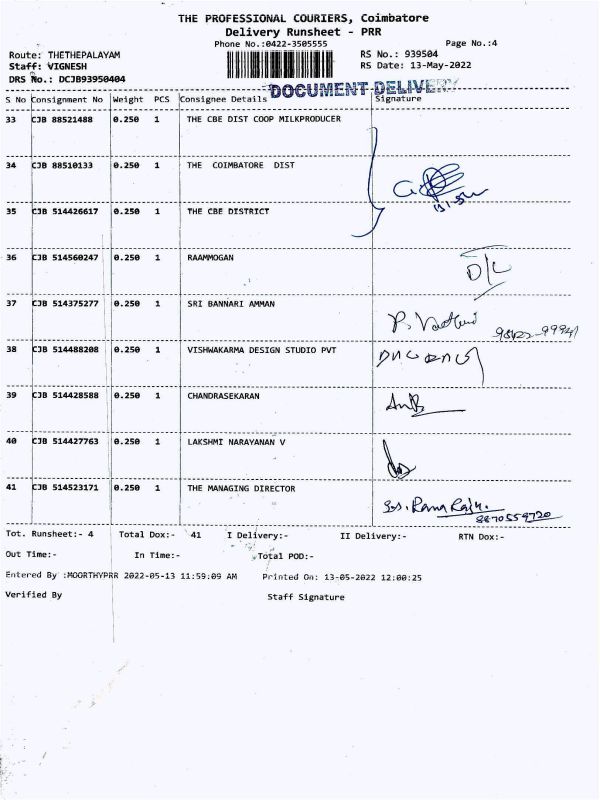 THE PROFESSIONAL COURIERS, Coimbatore
Delivery Runsheet - PRR
Phone No.:0422-3505555 Page No.:4
Route: THETHEPALAYAM RS No.: 939504
Staff: VIGNESH RS Date: 13-May-2022
DRS No.: DCJB93950404
DOCUMENT DELIVERY
S No Consignment No Weight PCS Consignee Details Signature
33 CJB 88521488 0.250 1 THE CBE DIST COOP MILKPRODUCER
34 CJB 88510133 0.250 1 THE COIMBATORE DIST
35 CJB 514426617 0.250 1 THE CBE DISTRICT
36 CJB 514560247 0.250 1 RAAMMOGAN D/L
37 CJB 514375277 0.250 1 SRI BANNARI AMMAN
38 CJB 514488208 0.250 1 VISHWAKARMA DESIGN STUDIO PVT
39 CJB 514428588 0.250 1 CHANDRASEKARAN
40 CJB 514427763 0.250 1 LAKSHMI NARAYANAN V
41 CJB 514523171 0.250 1 THE MANAGING DIRECTOR
8870559720
Tot. Runsheet:- 4 Total Dox:- 41 I Delivery:- II Delivery:- RTN Dox:-
Out Time:- In Time:- Total POD:-
Entered By :MOORTHYPRR 2022-05-13 11:59:09 AM Printed On: 13-05-2022 12:00:25
Verified By Staff Signature